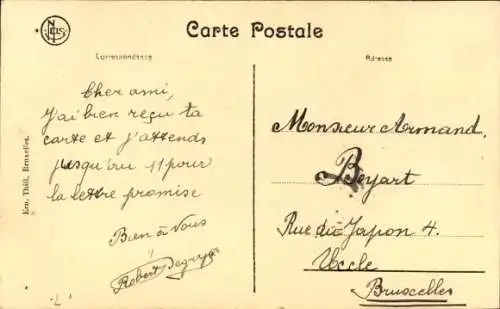 Carte Postale
Correspondance
Adresse
Cher ami,
J'ai bien reçu ta
carte et j'attends
jusqu'au 11 pour
la lettre promise
Bien à Vous
Robert
Monsieur Armand
Beyart
Rue du Japon 4.
Uccle
Bruxelles
Ern. Thill, Bruxelles.